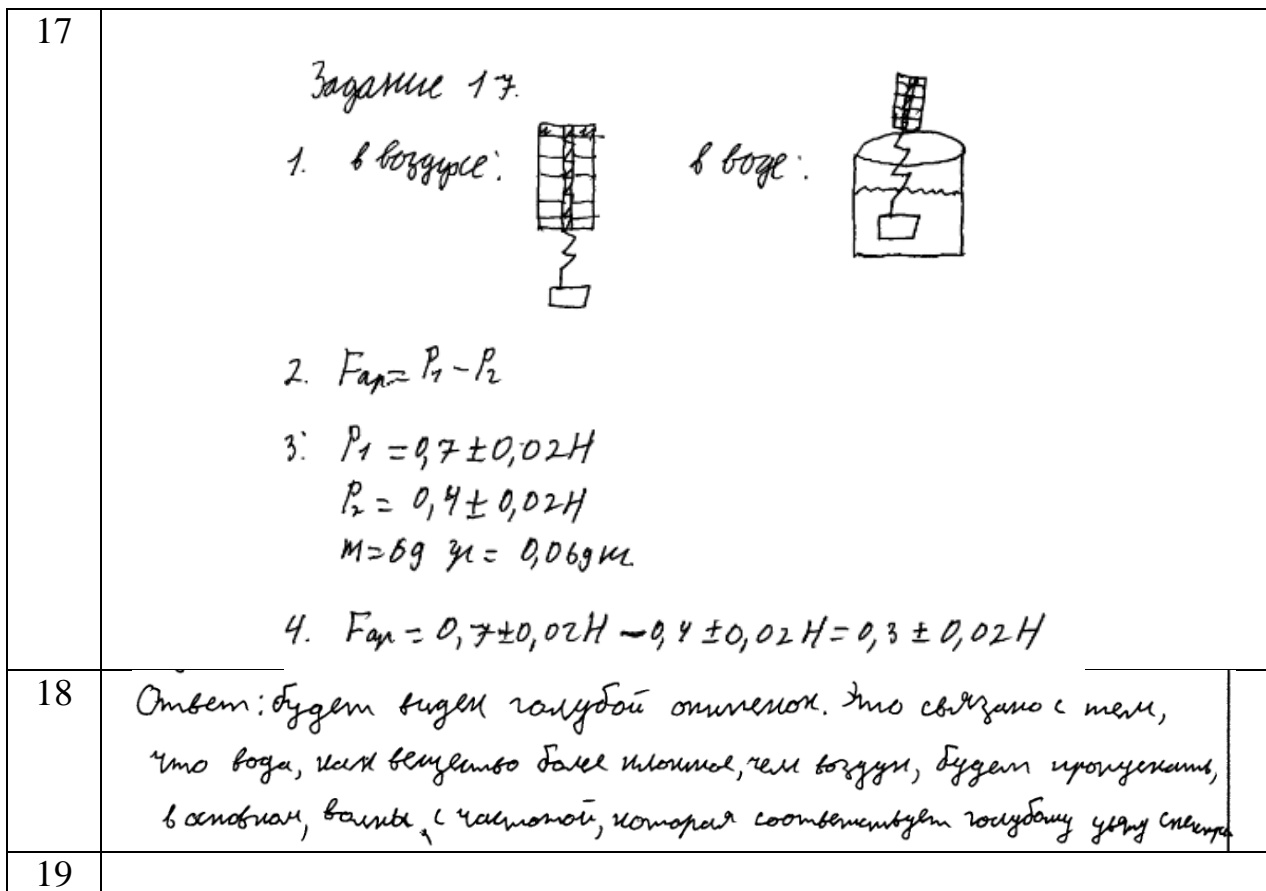 17
Задание 17.
1. в воздухе: в воде:
2. Fарх= P₁ - P₂
3. P₁ = 0,7 ± 0,02Н
P₂ = 0,4 ± 0,02Н
m=69 г = 0,069 кг
4. Fар = 0,7±0,02Н - 0,4 ± 0,02Н = 0,3 ± 0,02Н
18
Ответ: будет виден голубой оттенок. Это связано с тем,
что вода, как вещество более плотное, чем воздух, будет пропускать,
в основном, волны с частотой, которая соответствует голубому цвету спектра
19